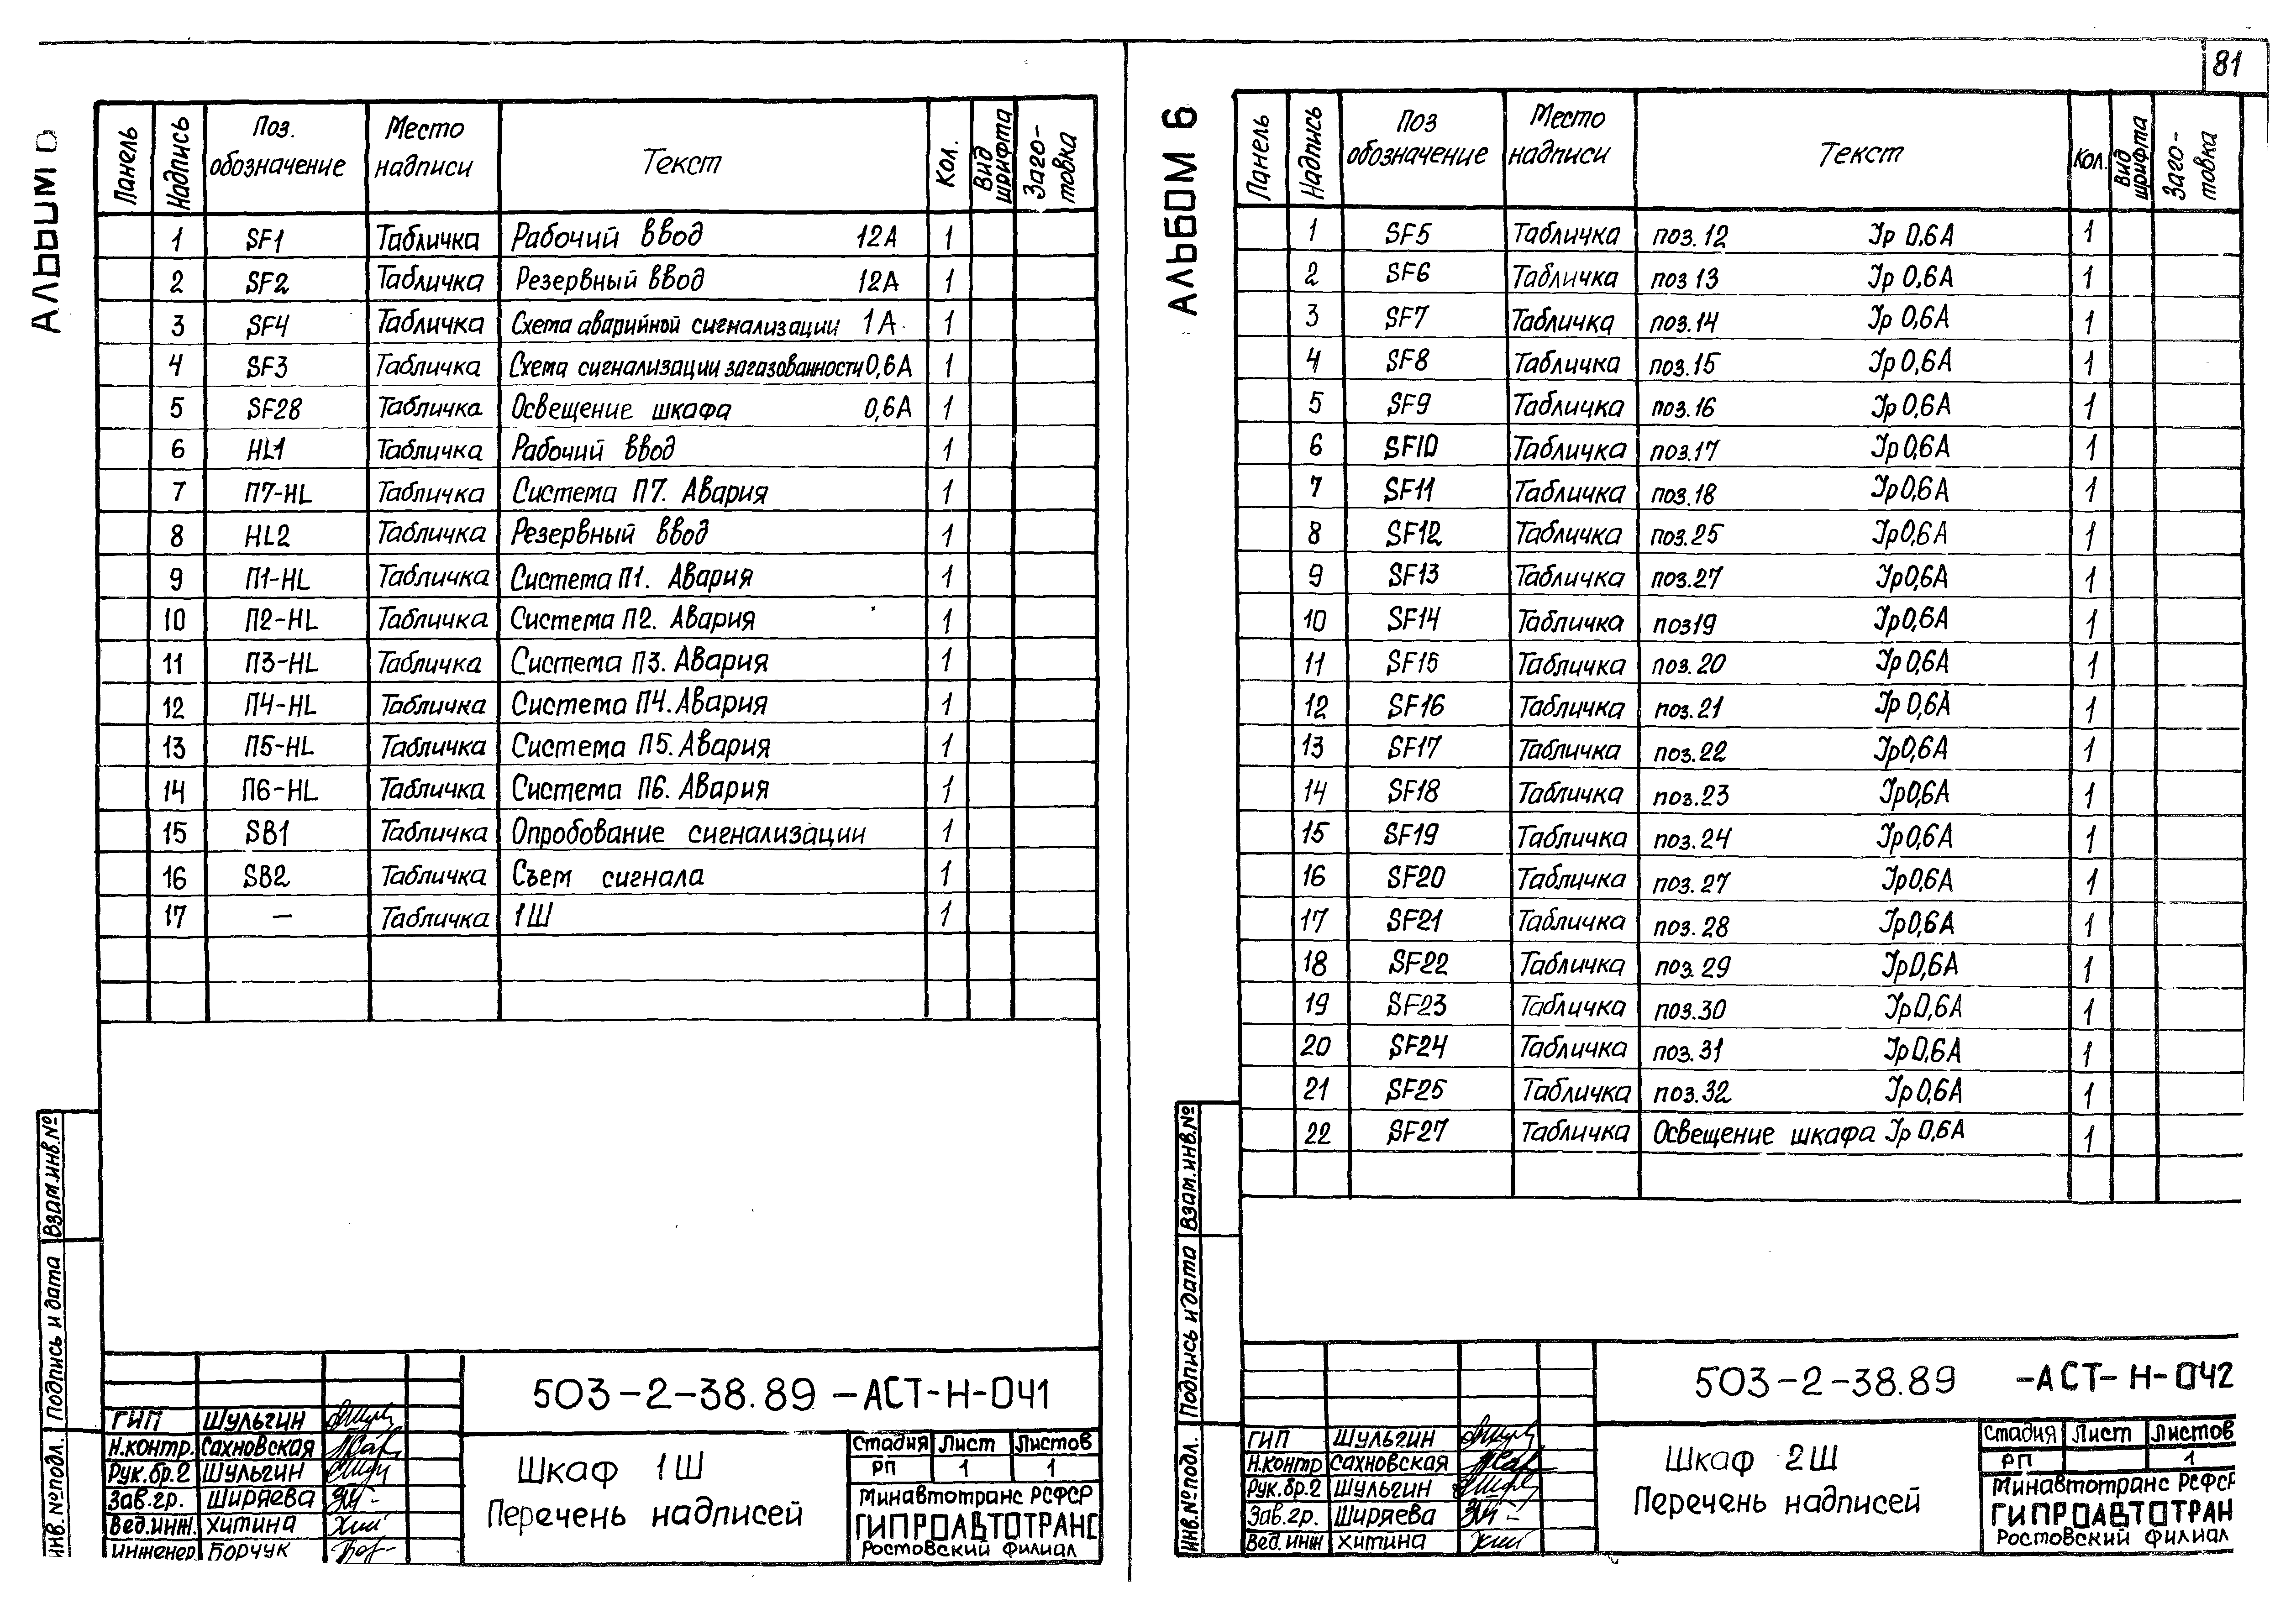 81
АЛЬБОМ 6
Панель Надпись Поз. обозначение Место надписи Текст Кол. Вид шрифта Заготовка
1 SF1 Табличка Рабочий ввод 12А 1
2 SF2 Табличка Резервный ввод 12А 1
3 SF4 Табличка Схема аварийной сигнализации 1А 1
4 SF3 Табличка Схема сигнализации загазованности 0,6А 1
5 SF28 Табличка Освещение шкафа 0,6А 1
6 HL1 Табличка Рабочий ввод 1
7 П7-HL Табличка Система П7. Авария 1
8 HL2 Табличка Резервный ввод 1
9 П1-HL Табличка Система П1. Авария 1
10 П2-HL Табличка Система П2. Авария 1
11 П3-HL Табличка Система П3. Авария 1
12 П4-HL Табличка Система П4. Авария 1
13 П5-HL Табличка Система П5. Авария 1
14 П6-HL Табличка Система П6. Авария 1
15 SB1 Табличка Опробование сигнализации 1
16 SB2 Табличка Съем сигнала 1
17 — Табличка 1Ш 1
Взам.инв.№
Подпись и дата
Инв.№подл.
503-2-38.89 -АСТ-Н-041
ГИП Шульгин
Н.контр. Сахновская
Рук.бр.2 Шульгин
Зав.гр. Ширяева
Вед.инж. Хитина
Инженер Борчук
Шкаф 1Ш
Перечень надписей
Стадия Лист Листов
РП 1 1
Минавтотранс РСФСР
ГИПРОАВТОТРАНС
Ростовский филиал
АЛЬБОМ 6
Панель Надпись Поз обозначение Место надписи Текст Кол. Вид шрифта Заготовка
1 SF5 Табличка поз.12 Iр 0,6А 1
2 SF6 Табличка поз 13 Iр 0,6А 1
3 SF7 Табличка поз.14 Iр 0,6А 1
4 SF8 Табличка поз.15 Iр 0,6А 1
5 SF9 Табличка поз.16 Iр 0,6А 1
6 SF10 Табличка поз.17 Iр 0,6А 1
7 SF11 Табличка поз.18 Iр 0,6А 1
8 SF12 Табличка поз.25 Iр 0,6А 1
9 SF13 Табличка поз.27 Iр 0,6А 1
10 SF14 Табличка поз19 Iр 0,6А 1
11 SF15 Табличка поз.20 Iр 0,6А 1
12 SF16 Табличка поз.21 Iр 0,6А 1
13 SF17 Табличка поз.22 Iр 0,6А 1
14 SF18 Табличка поз.23 Iр 0,6А 1
15 SF19 Табличка поз.24 Iр 0,6А 1
16 SF20 Табличка поз.27 Iр 0,6А 1
17 SF21 Табличка поз.28 Iр 0,6А 1
18 SF22 Табличка поз.29 Iр 0,6А 1
19 SF23 Табличка поз.30 Iр 0,6А 1
20 SF24 Табличка поз.31 Iр 0,6А 1
21 SF25 Табличка поз.32 Iр 0,6А 1
22 SF27 Табличка Освещение шкафа Iр 0,6А 1
Взам.инв.№
Подпись и дата
Инв.№подл.
503-2-38.89 -АСТ-Н-042
ГИП Шульгин
Н.контр Сахновская
Рук.бр.2 Шульгин
Зав.гр. Ширяева
Вед.инж Хитина
Шкаф 2Ш
Перечень надписей
Стадия Лист Листов
РП 1
Минавтотранс РСФСР
ГИПРОАВТОТРАН
Ростовский филиал